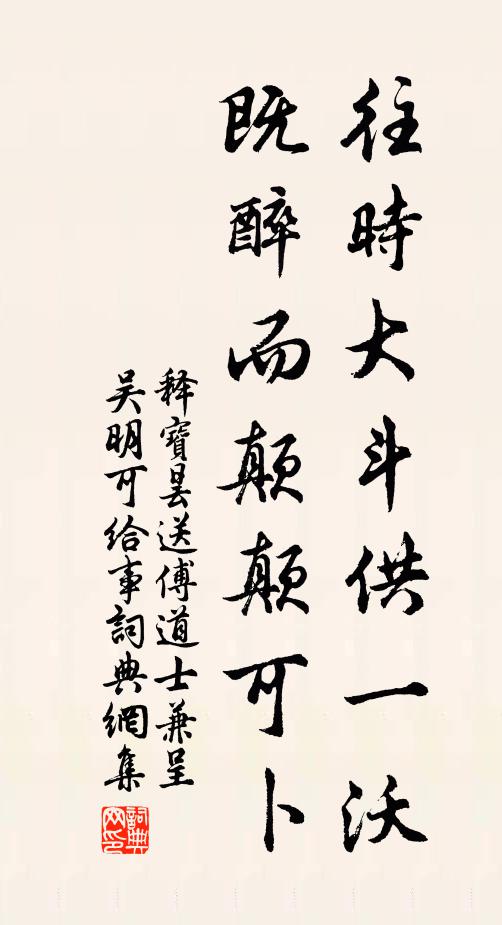 往時大斗供一沃
既醉而顛顛可卜
释寶昙送傅道士兼呈
吴明可給事詞典網集
詞典網印